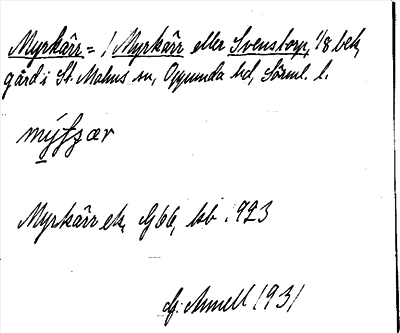 Myrkärr = / Myrkärr eller Svenstorp, 1/8 bek,
gård i St. Malms sn, Oppunda hd, Sörml. l.
Myrkärr ek, G66, bb 1923
1931